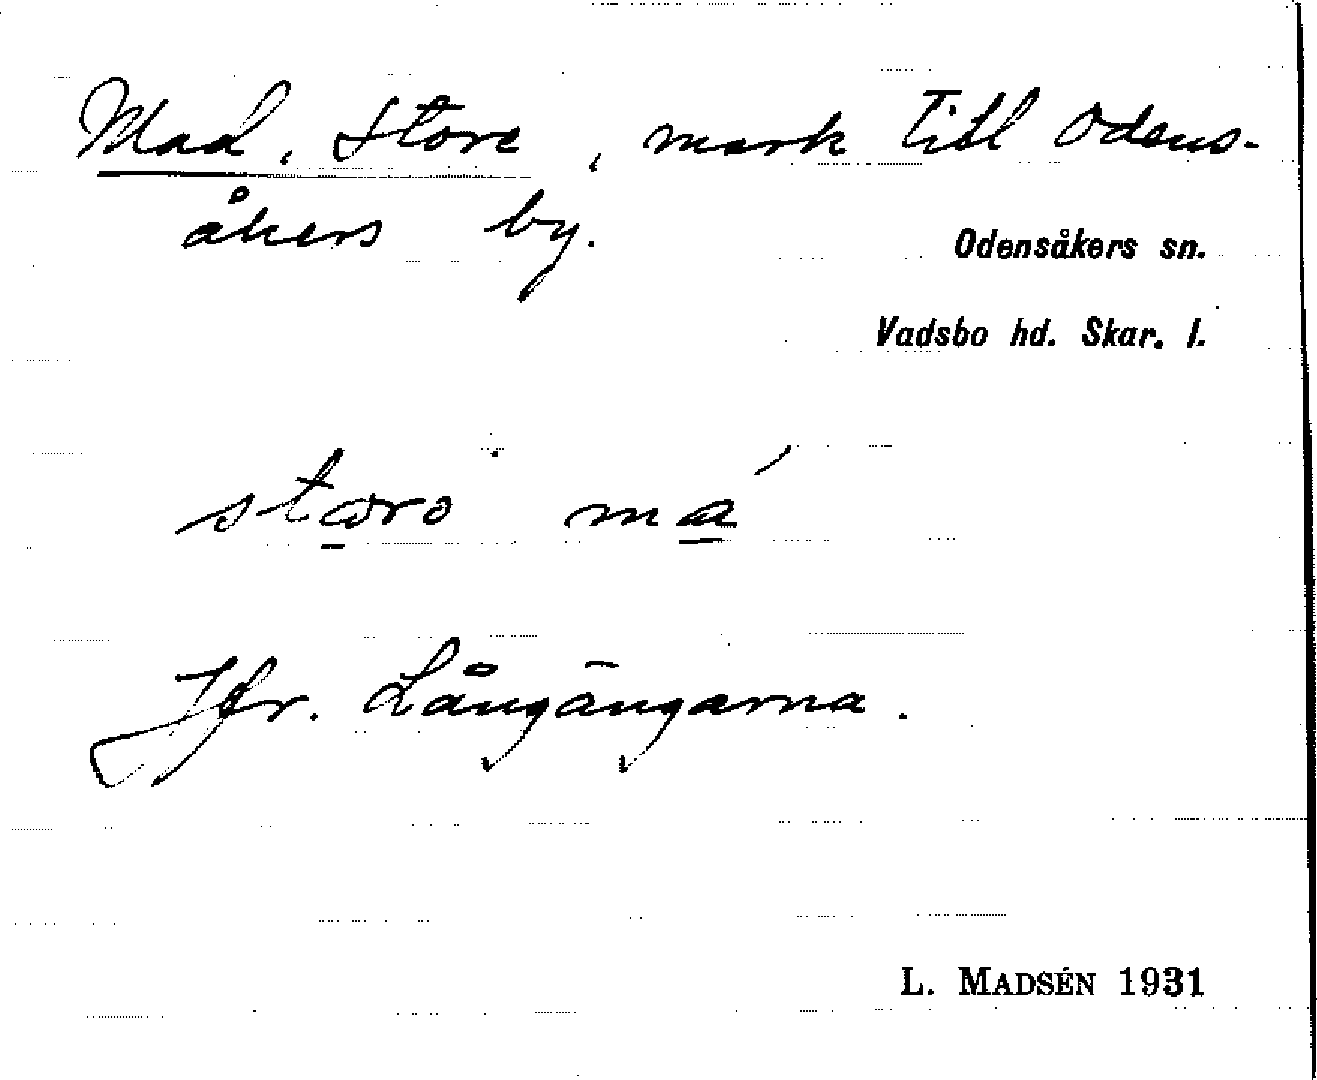 Mad, Store, mark till Odens-
åkers by.
Odensåkers sn.
Vadsbo hd. Skar. l.
Jfr. Långängarna.
L. MADSÉN 1931